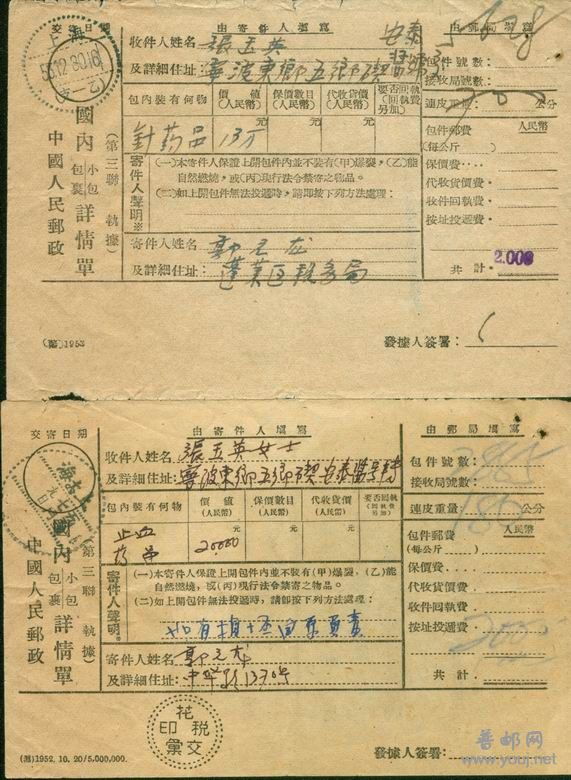 交寄日期
由寄件人填寫
由郵局填寫
上海
53.12.30.16
國內小包包裹詳情單
(第三聯 執據)
中國人民郵政
收件人姓名
及詳細住址:
張玉英
寧波東鄉五鄉碶
包件號數:
接收局號數:
連皮重量: 公分
包內裝有何物
價值(人民幣)
保價數目(人民幣)
代收貨價(人民幣)
要否回執(回執費另加)
元 元 元
針药品 13万
包件郵費 人民幣
(每公斤 )
保價費·
代收貨價費·
收件回執費·
按址投遞費·
共計· 2.000
寄件人聲明※
(一)本寄件人保證上開包件內並不裝有(甲)爆裂,(乙)能
自然燃燒,或(丙)現行法令禁寄之物品。
(二)如上開包件無法投遞時,請即按下列方法處理:
寄件人姓名
及詳細住址:
郭元龙
蓬萊區稅务局
(滬)1953
發據人簽署:
交寄日期
由寄件人填寫
由郵局填寫
上海
國內小包包裹詳情單
(第三聯 執據)
中國人民郵政
收件人姓名
及詳細住址:
張玉英女士
寧波東鄉五鄉碶
包件號數:
接收局號數:
連皮重量: 公分
包內裝有何物
價值(人民幣)
保價數目(人民幣)
代收貨價(人民幣)
要否回執(回執費另加)
元 元 元
止血
20000
包件郵費 人民幣
(每公斤 )
保價費·
代收貨價費·
收件回執費·
按址投遞費·
共計·
寄件人聲明※
(一)本寄件人保證上開包件內並不裝有(甲)爆裂,(乙)能
自然燃燒,或(丙)現行法令禁寄之物品。
(二)如上開包件無法投遞時,請卽按下列方法處理:
寄件人姓名
及詳細住址:
郭元龙
中華路1370号
花税印彙交
(滬)1952.10.20/5,000,000.
發據人簽署:
普邮网
www.youj.net